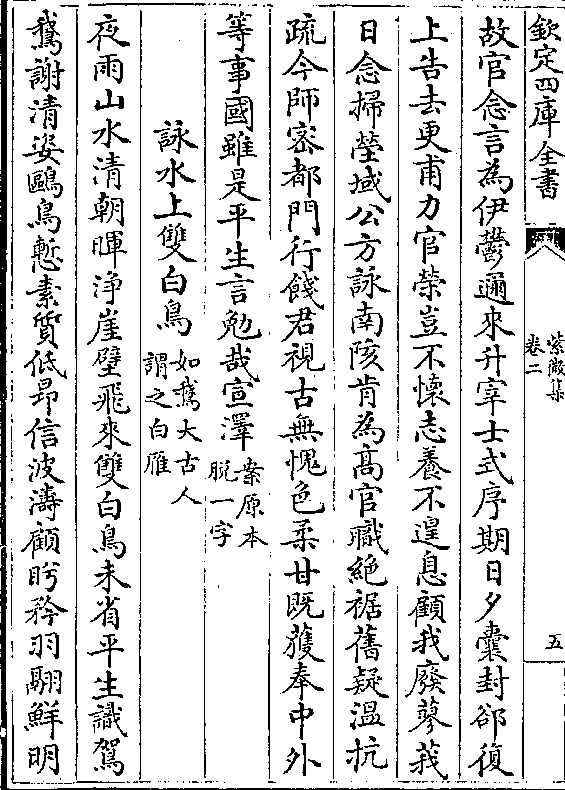 欽定四庫全書
紫微集
卷二
五
故官念言為伊鬱邇來升宰士式序期日夕囊封郤復
上告去更甫力官榮豈不懷志養不遑息顧我廢蓼莪
日念掃塋域公方詠南陔肯為髙官職絶裾舊疑溫抗
疏今師密都門行餞君視古無愧色柔甘既䕶奉中外
等事國雖是平生言勉哉宣澤案原本
脱一字
詠水上雙白鳥如鵞大古人
謂之白雁
夜雨山水清朝暉浄崖壁飛來雙白鳥未省平生識駕
鵞謝清姿鷗鳥慙素質低昻信波濤顧眄矜羽翮鮮明